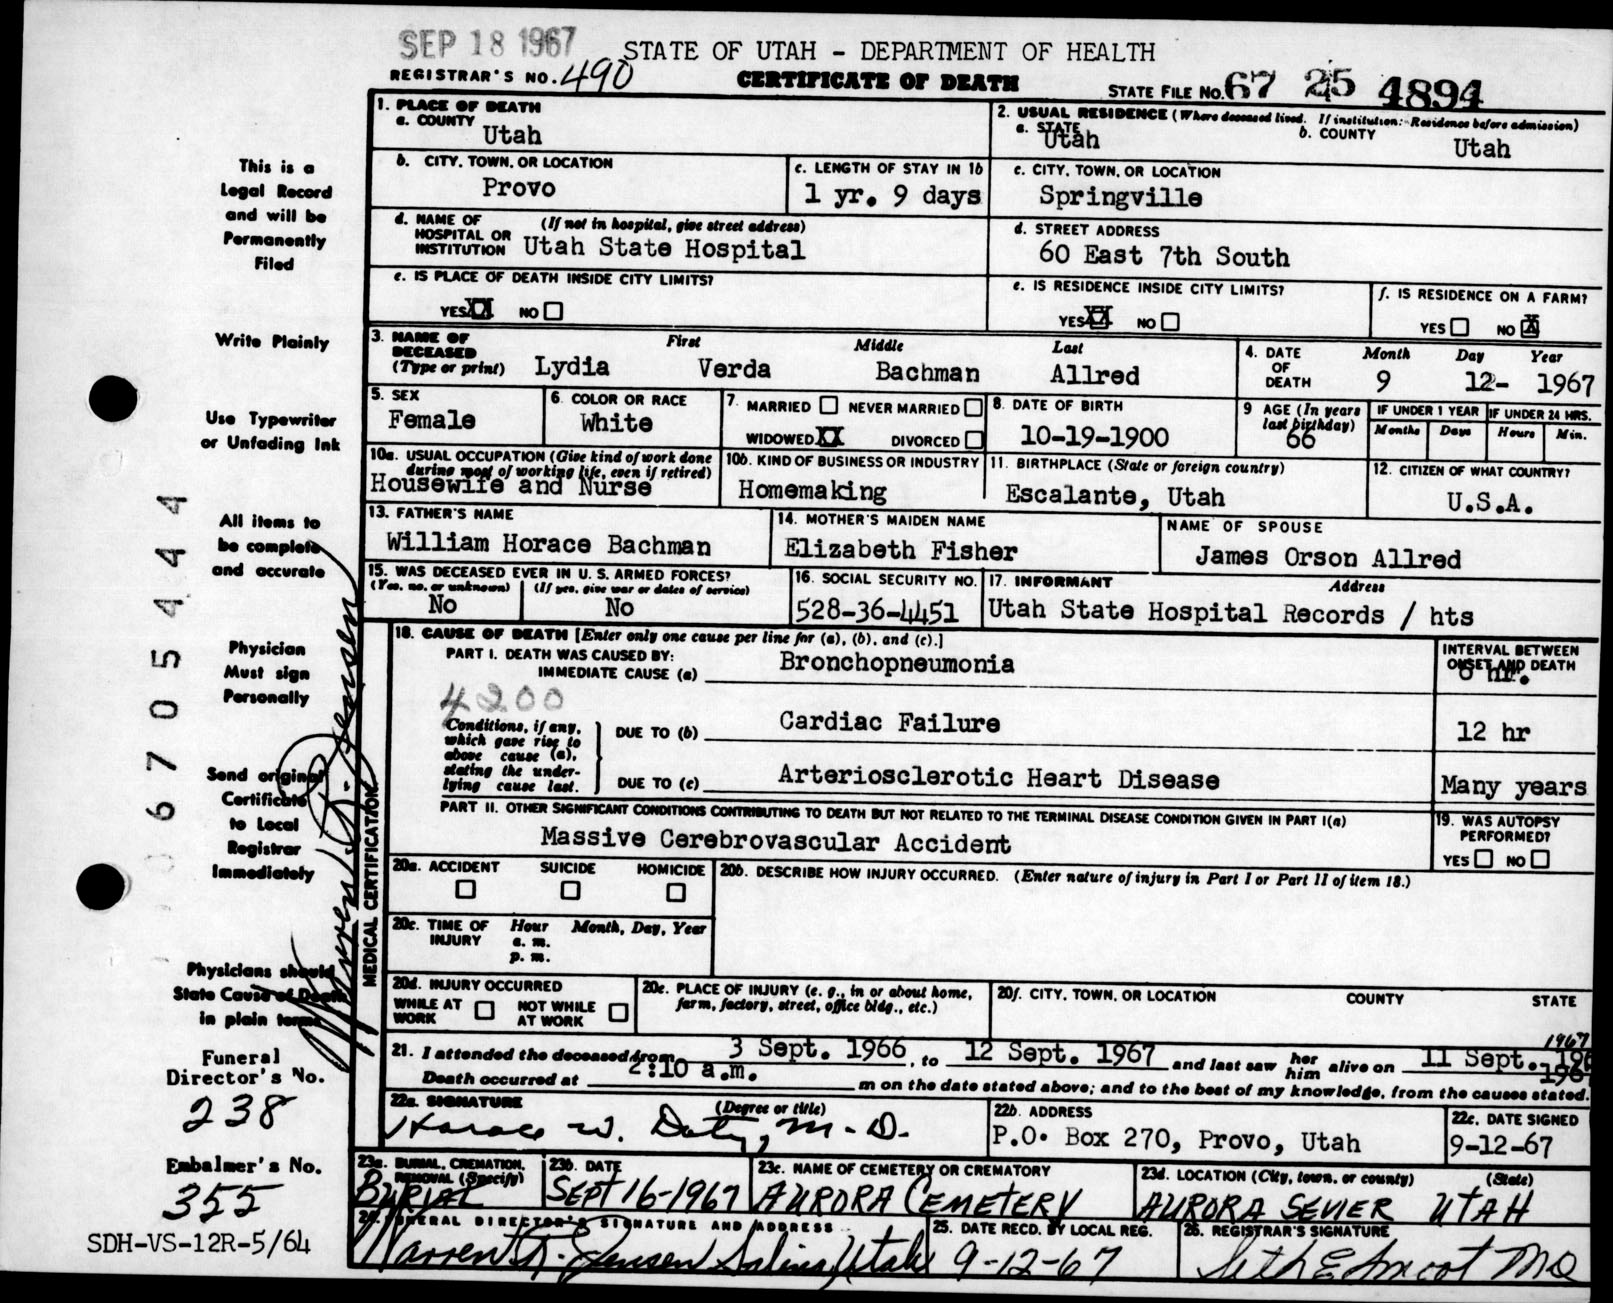 SEP 18 1967 STATE OF UTAH - DEPARTMENT OF HEALTH
REGISTRAR'S NO. 490 CERTIFICATE OF DEATH STATE FILE NO. 67 25 4894
1. PLACE OF DEATH
a. COUNTY Utah
2. USUAL RESIDENCE (Where deceased lived. If institution: Residence before admission)
a. STATE Utah b. COUNTY Utah
b. CITY, TOWN, OR LOCATION Provo
c. LENGTH OF STAY IN 1b 1 yr. 9 days
c. CITY, TOWN, OR LOCATION Springville
d. NAME OF HOSPITAL OR INSTITUTION (If not in hospital, give street address) Utah State Hospital
d. STREET ADDRESS 60 East 7th South
e. IS PLACE OF DEATH INSIDE CITY LIMITS?
YES XX NO
e. IS RESIDENCE INSIDE CITY LIMITS?
YES XX NO
f. IS RESIDENCE ON A FARM?
YES NO X
3. NAME OF DECEASED (Type or print) First Middle Last
Lydia Verda Bachman Allred
4. DATE OF DEATH Month Day Year
9 12- 1967
5. SEX Female
6. COLOR OR RACE White
7. MARRIED NEVER MARRIED
WIDOWED XX DIVORCED
8. DATE OF BIRTH 10-19-1900
9 AGE (In years last birthday) 66
IF UNDER 1 YEAR Months Days
IF UNDER 24 HRS. Hours Min.
10a. USUAL OCCUPATION (Give kind of work done during most of working life, even if retired)
Housewife and Nurse
10b. KIND OF BUSINESS OR INDUSTRY Homemaking
11. BIRTHPLACE (State or foreign country) Escalante, Utah
12. CITIZEN OF WHAT COUNTRY? U.S.A.
13. FATHER'S NAME William Horace Bachman
14. MOTHER'S MAIDEN NAME Elizabeth Fisher
NAME OF SPOUSE James Orson Allred
15. WAS DECEASED EVER IN U. S. ARMED FORCES?
(Yes, no, or unknown) No (If yes, give war or dates of service) No
16. SOCIAL SECURITY NO. 528-36-4451
17. INFORMANT Address
Utah State Hospital Records / hts
MEDICAL CERTIFICATION
18. CAUSE OF DEATH [Enter only one cause per line for (a), (b), and (c).]
PART I. DEATH WAS CAUSED BY:
IMMEDIATE CAUSE (a) Bronchopneumonia
INTERVAL BETWEEN ONSET AND DEATH
hr.
4200
Conditions, if any, which gave rise to above cause (a), stating the under-lying cause last.
DUE TO (b) Cardiac Failure 12 hr
DUE TO (c) Arteriosclerotic Heart Disease Many years
PART II. OTHER SIGNIFICANT CONDITIONS CONTRIBUTING TO DEATH BUT NOT RELATED TO THE TERMINAL DISEASE CONDITION GIVEN IN PART I(a)
Massive Cerebrovascular Accident
19. WAS AUTOPSY PERFORMED?
YES NO
20a. ACCIDENT SUICIDE HOMICIDE
20b. DESCRIBE HOW INJURY OCCURRED. (Enter nature of injury in Part I or Part II of item 18.)
20c. TIME OF INJURY Hour Month, Day, Year
a. m.
p. m.
20d. INJURY OCCURRED
WHILE AT WORK NOT WHILE AT WORK
20e. PLACE OF INJURY (e. g., in or about home, farm, factory, street, office bldg., etc.)
20f. CITY, TOWN, OR LOCATION COUNTY STATE
1967
21. I attended the deceased from 3 Sept. 1966, to 12 Sept. 1967 and last saw her him alive on 11 Sept. 1967
Death occurred at 2:10 a.m. m on the date stated above; and to the best of my knowledge, from the causes stated.
22a. SIGNATURE (Degree or title)
Horace W. Doty, M. D.
22b. ADDRESS
P.O. Box 270, Provo, Utah
22c. DATE SIGNED
9-12-67
23a. BURIAL, CREMATION, REMOVAL (Specify)
BURIAL
23b. DATE
SEPT 16-1967
23c. NAME OF CEMETERY OR CREMATORY
AURORA CEMETERY
23d. LOCATION (City, town, or county) (State)
AURORA SEVIER UTAH
24. FUNERAL DIRECTOR'S SIGNATURE AND ADDRESS
Warren D. Jensen Salina, Utah
25. DATE RECD. BY LOCAL REG.
9-12-67
26. REGISTRAR'S SIGNATURE
Seth E Smoot MD
This is a
Legal Record
and will be
Permanently
Filed
Write Plainly
Use Typewriter
or Unfading Ink
All items to
be complete
and accurate
Physician
Must sign
Personally
Send original
Certificate
to Local
Registrar
Immediately
Physicians should
State Cause of Death
in plain terms
Funeral
Director's No.
238
Embalmer's No.
355
SDH-VS-12R-5/64
067 05444
Warren D. Jensen